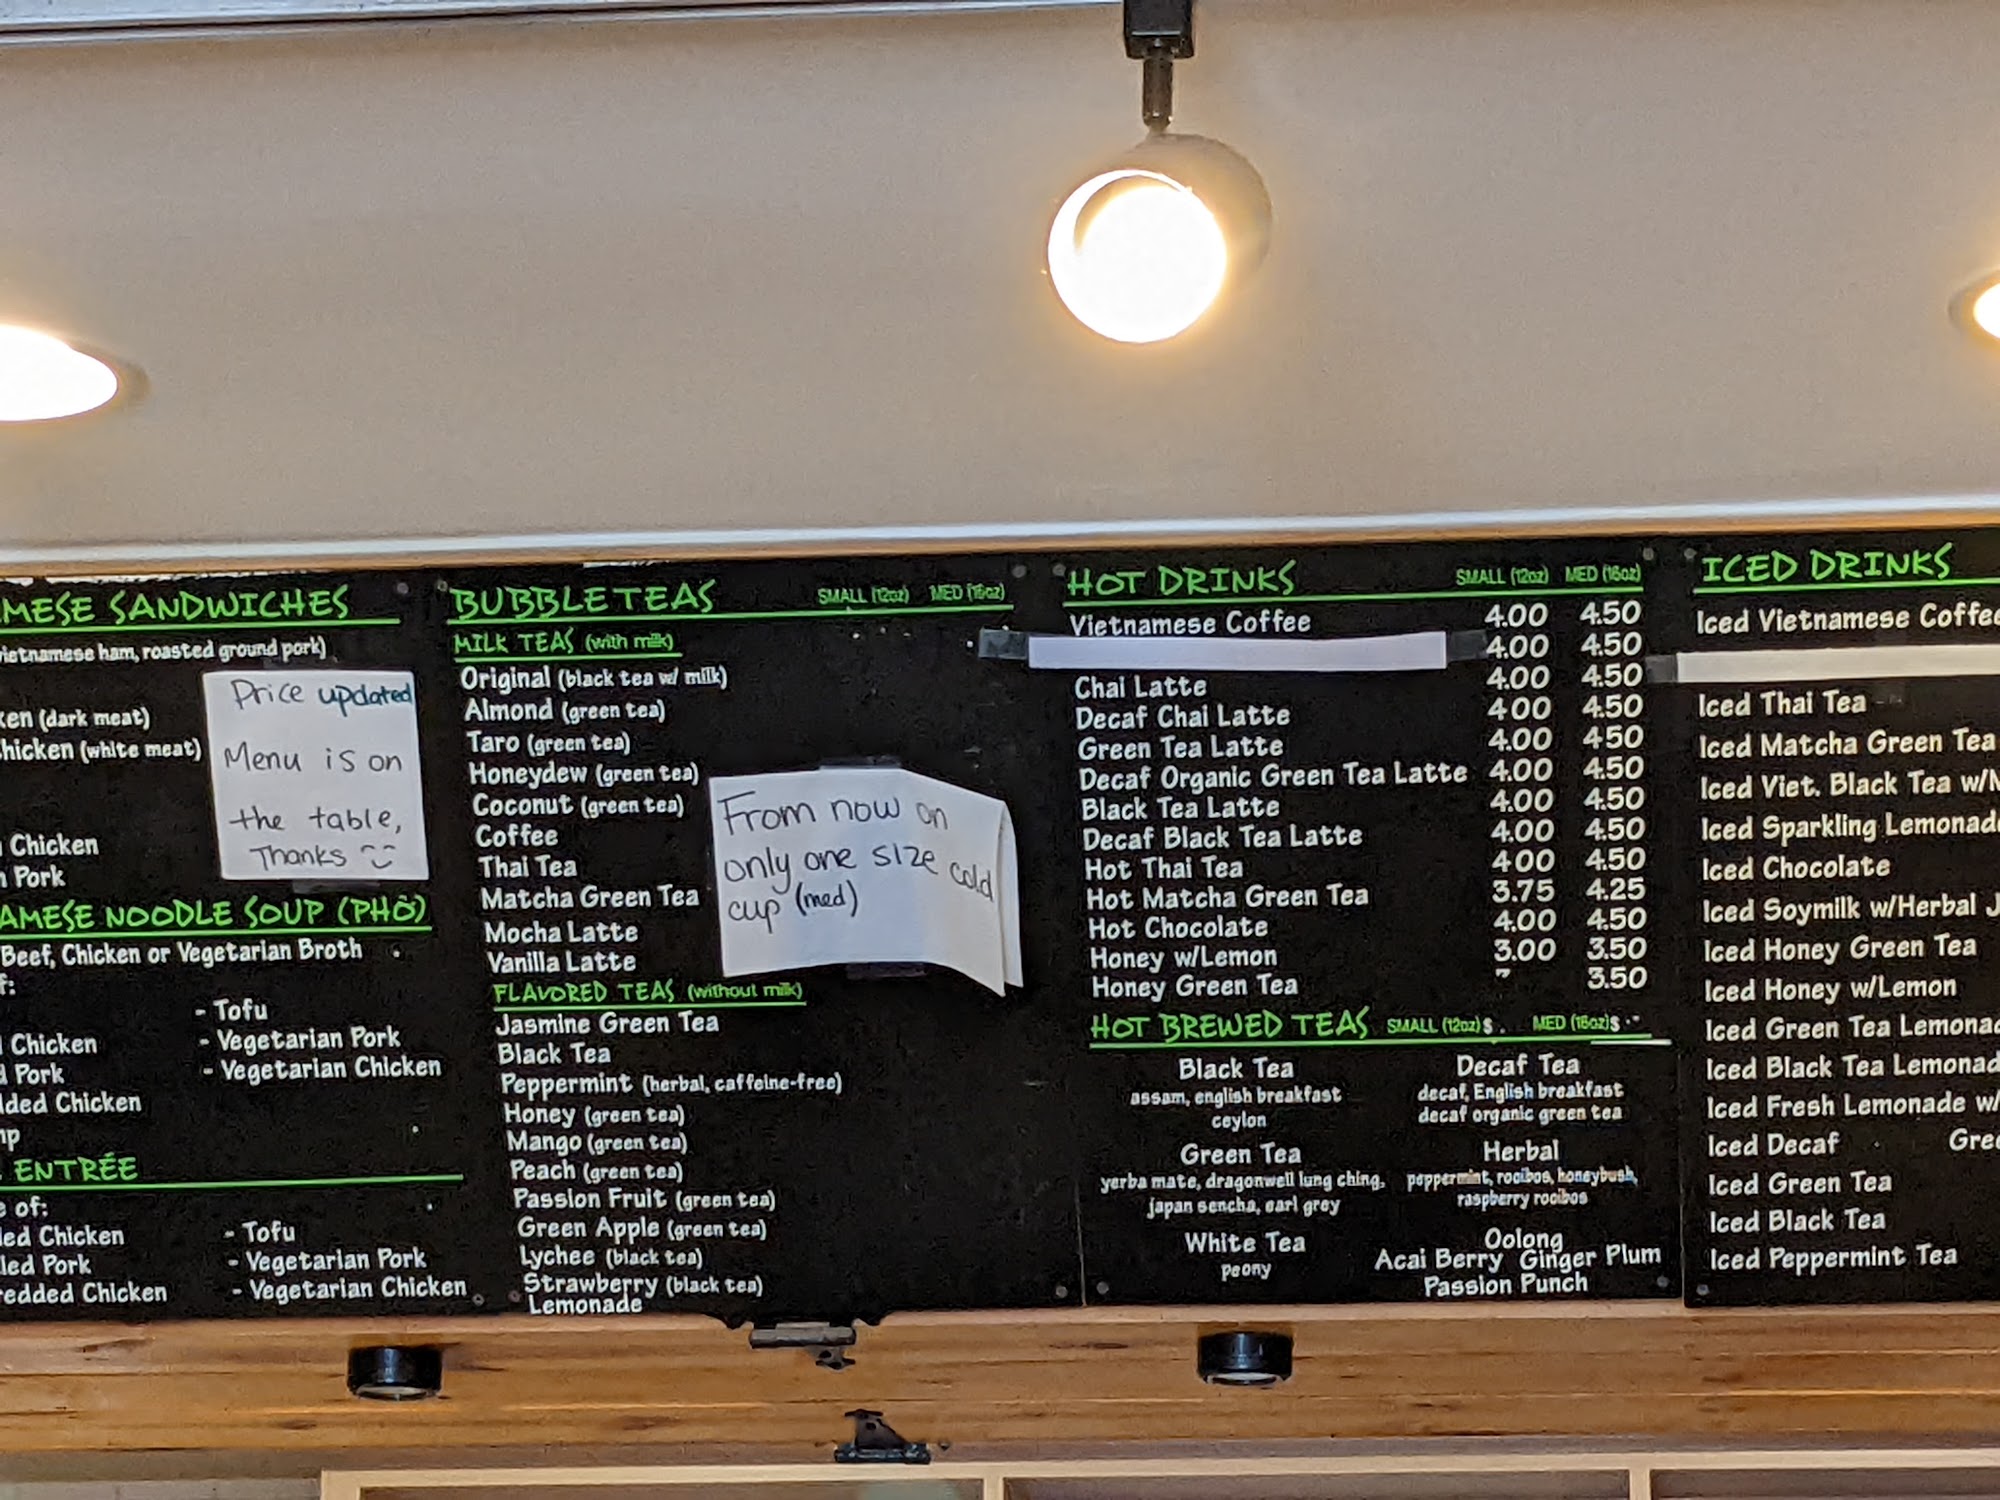 MESE SANDWICHES
vietnamese ham, roasted ground pork)
Price updated
Menu is on
the table,
Thanks
ken (dark meat)
hicken (white meat)
Chicken
Pork
AMESE NOODLE SOUP (PHỞ)
Beef, Chicken or Vegetarian Broth
f:
- Tofu
Chicken
- Vegetarian Pork
d Pork
- Vegetarian Chicken
dded Chicken
mp
ENTRÉE
e of:
ed Chicken
- Tofu
led Pork
- Vegetarian Pork
redded Chicken
- Vegetarian Chicken
BUBBLE TEAS SMALL (12oz) MED (16oz)
MILK TEAS (with milk)
Original (black tea w/ milk)
Almond (green tea)
Taro (green tea)
Honeydew (green tea)
Coconut (green tea)
Coffee
Thai Tea
Matcha Green Tea
Mocha Latte
Vanilla Latte
From now on
only one size cold
cup (med)
FLAVORED TEAS (without milk)
Jasmine Green Tea
Black Tea
Peppermint (herbal, caffeine-free)
Honey (green tea)
Mango (green tea)
Peach (green tea)
Passion Fruit (green tea)
Green Apple (green tea)
Lychee (black tea)
Strawberry (black tea)
Lemonade
HOT DRINKS SMALL (12oz) MED (16oz)
Vietnamese Coffee 4.00 4.50
4.00 4.50
Chai Latte 4.00 4.50
Decaf Chai Latte 4.00 4.50
Green Tea Latte 4.00 4.50
Decaf Organic Green Tea Latte 4.00 4.50
Black Tea Latte 4.00 4.50
Decaf Black Tea Latte 4.00 4.50
Hot Thai Tea 4.00 4.50
Hot Matcha Green Tea 3.75 4.25
Hot Chocolate 4.00 4.50
Honey w/Lemon 3.00 3.50
Honey Green Tea 3.50
HOT BREWED TEAS SMALL (12oz) $ MED (16oz) $
Black Tea
assam, english breakfast
ceylon
Decaf Tea
decaf, English breakfast
decaf organic green tea
Green Tea
yerba mate, dragonwell lung ching,
japan sencha, earl grey
Herbal
peppermint, rooibos, honeybush,
raspberry rooibos
White Tea
peony
Oolong
Acai Berry Ginger Plum
Passion Punch
ICED DRINKS
Iced Vietnamese Coffee
Iced Thai Tea
Iced Matcha Green Tea
Iced Viet. Black Tea w/M
Iced Sparkling Lemonade
Iced Chocolate
Iced Soymilk w/Herbal J
Iced Honey Green Tea
Iced Honey w/Lemon
Iced Green Tea Lemonad
Iced Black Tea Lemonad
Iced Fresh Lemonade w/
Iced Decaf Gree
Iced Green Tea
Iced Black Tea
Iced Peppermint Tea